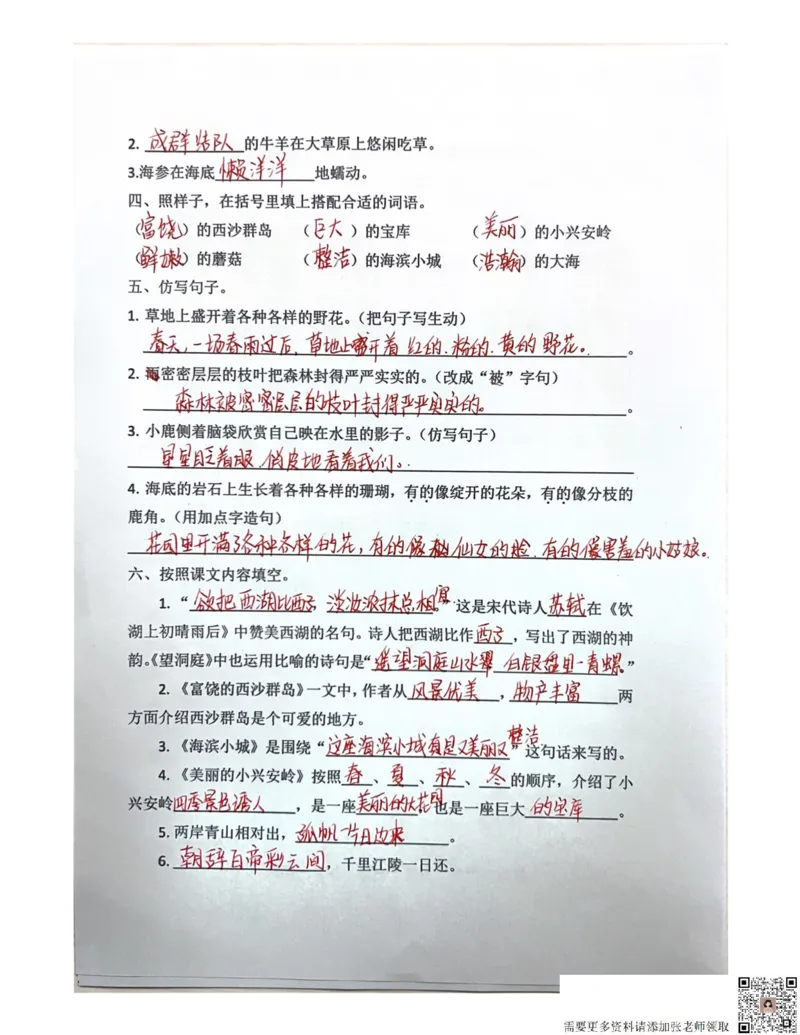 2. 成群结队的牛羊在大草原上悠闲吃草。
3.海参在海底懒洋洋地蠕动。
四、照样子，在括号里填上搭配合适的词语。
（富饶）的西沙群岛 （巨大）的宝库 （美丽）的小兴安岭
（鲜嫩）的蘑菇 （整洁）的海滨小城 （浩瀚）的大海
五、仿写句子。
1. 草地上盛开着各种各样的野花。（把句子写生动）
春天，一场春雨过后，草地上盛开着红的、粉的、黄的野花。。
2. 密密层层的枝叶把森林封得严严实实的。（改成“被”字句）
森林被密密层层的枝叶封得严严实实的。。
3. 小鹿侧着脑袋欣赏自己映在水里的影子。（仿写句子）
星星眨着眼，俏皮地看着我们。
4. 海底的岩石上生长着各种各样的珊瑚，有的像绽开的花朵，有的像分枝的
鹿角。（用加点字造句）
花园里开满了各种各样的花，有的像仙女的脸，有的像害羞的小姑娘。
六、按照课文内容填空。
1. “欲把西湖比西子，淡妆浓抹总相宜”这是宋代诗人苏轼在《饮
湖上初晴雨后》中赞美西湖的名句。诗人把西湖比作西子，写出了西湖的神
韵。《望洞庭》中也运用比喻的诗句是“遥望洞庭山水翠，白银盘里一青螺”
2. 《富饶的西沙群岛》一文中，作者从风景优美，物产丰富两
方面介绍西沙群岛是个可爱的地方。
3. 《海滨小城》是围绕“这座海滨小城真是又美丽又整洁”这句话来写的。
4. 《美丽的小兴安岭》按照春、夏、秋、冬的顺序，介绍了小
兴安岭四季景色诱人，是一座美丽的大花园也是一座巨大的宝库。
5. 两岸青山相对出，孤帆一片日边来。
6. 朝辞白帝彩云间，千里江陵一日还。
需要更多资料请添加张老师领取